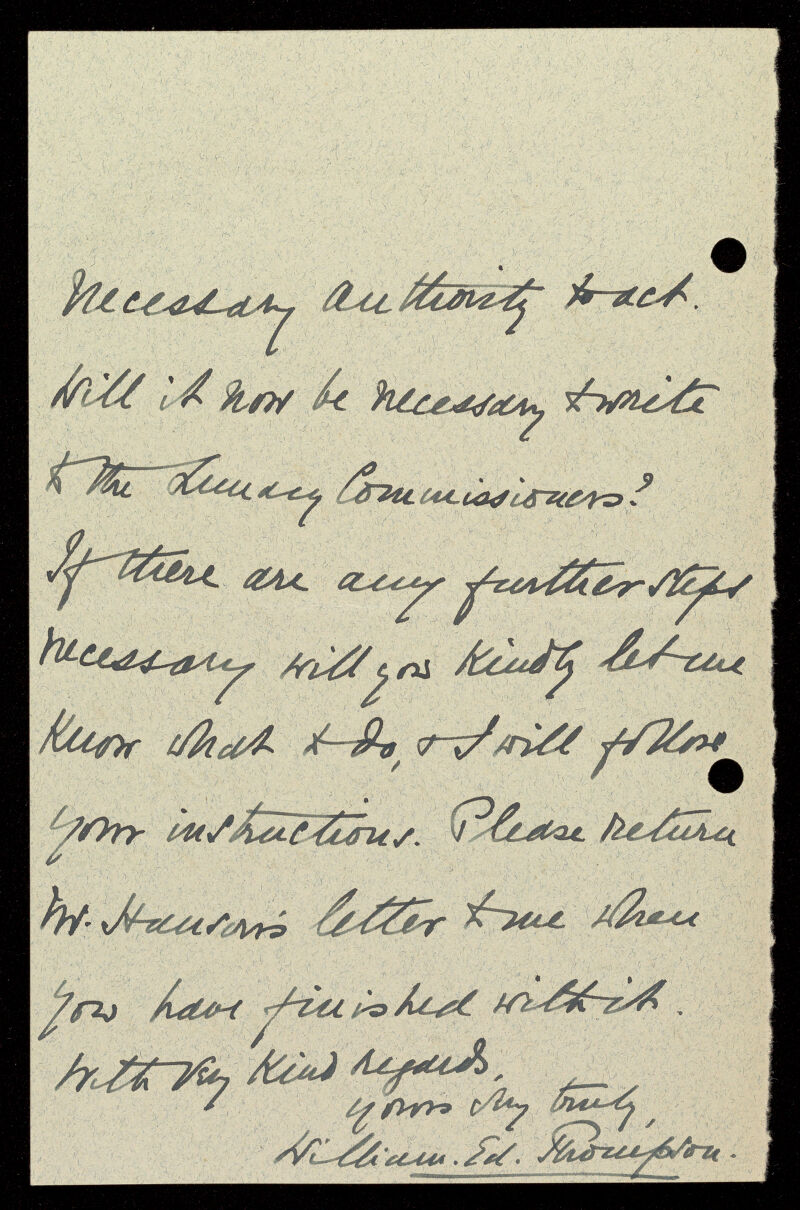 necessary authority to act.
Will it now be necessary to write
to the Lunacy Commissioners?
If there are any further steps
necessary will you kindly let me
know what to do, & I will follow
your instructions. Please return
Mr. Hanson's letter to me when
you have finished with it.
With very kind regards,
yours very truly,
William. Ed. Thompson.